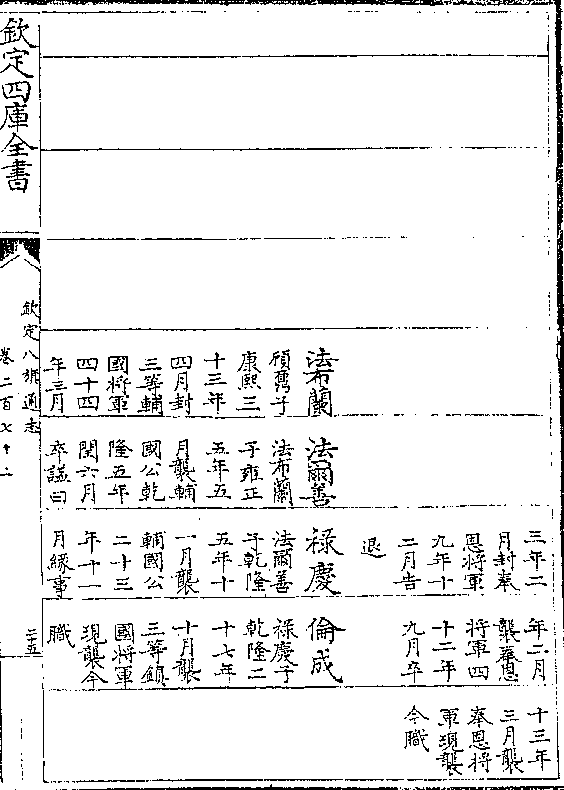 法布蘭
子
康熙三
十三年
四月封
三等輔
國將軍
四十四
年三月
法爾善
法布蘭
子雍正
五年五
月襲輔
國公乾
隆五年
閏六月
卒諡曰
三年二
月封奉
恩將軍
九年十
二月告
退
祿慶
法爾善
子乾隆
五年十
一月襲
輔國公
二十三
年十一
月緣事
年二月
襲奉恩
將軍四
十二年
九月卒
倫成
祿慶子
乾隆二
十七年
十月襲
三等鎮
國將軍
現襲今
職
十三年
三月襲
奉恩將
軍現襲
今職
欽定四庫全書
欽定八旗通志
卷二百七十二
三五